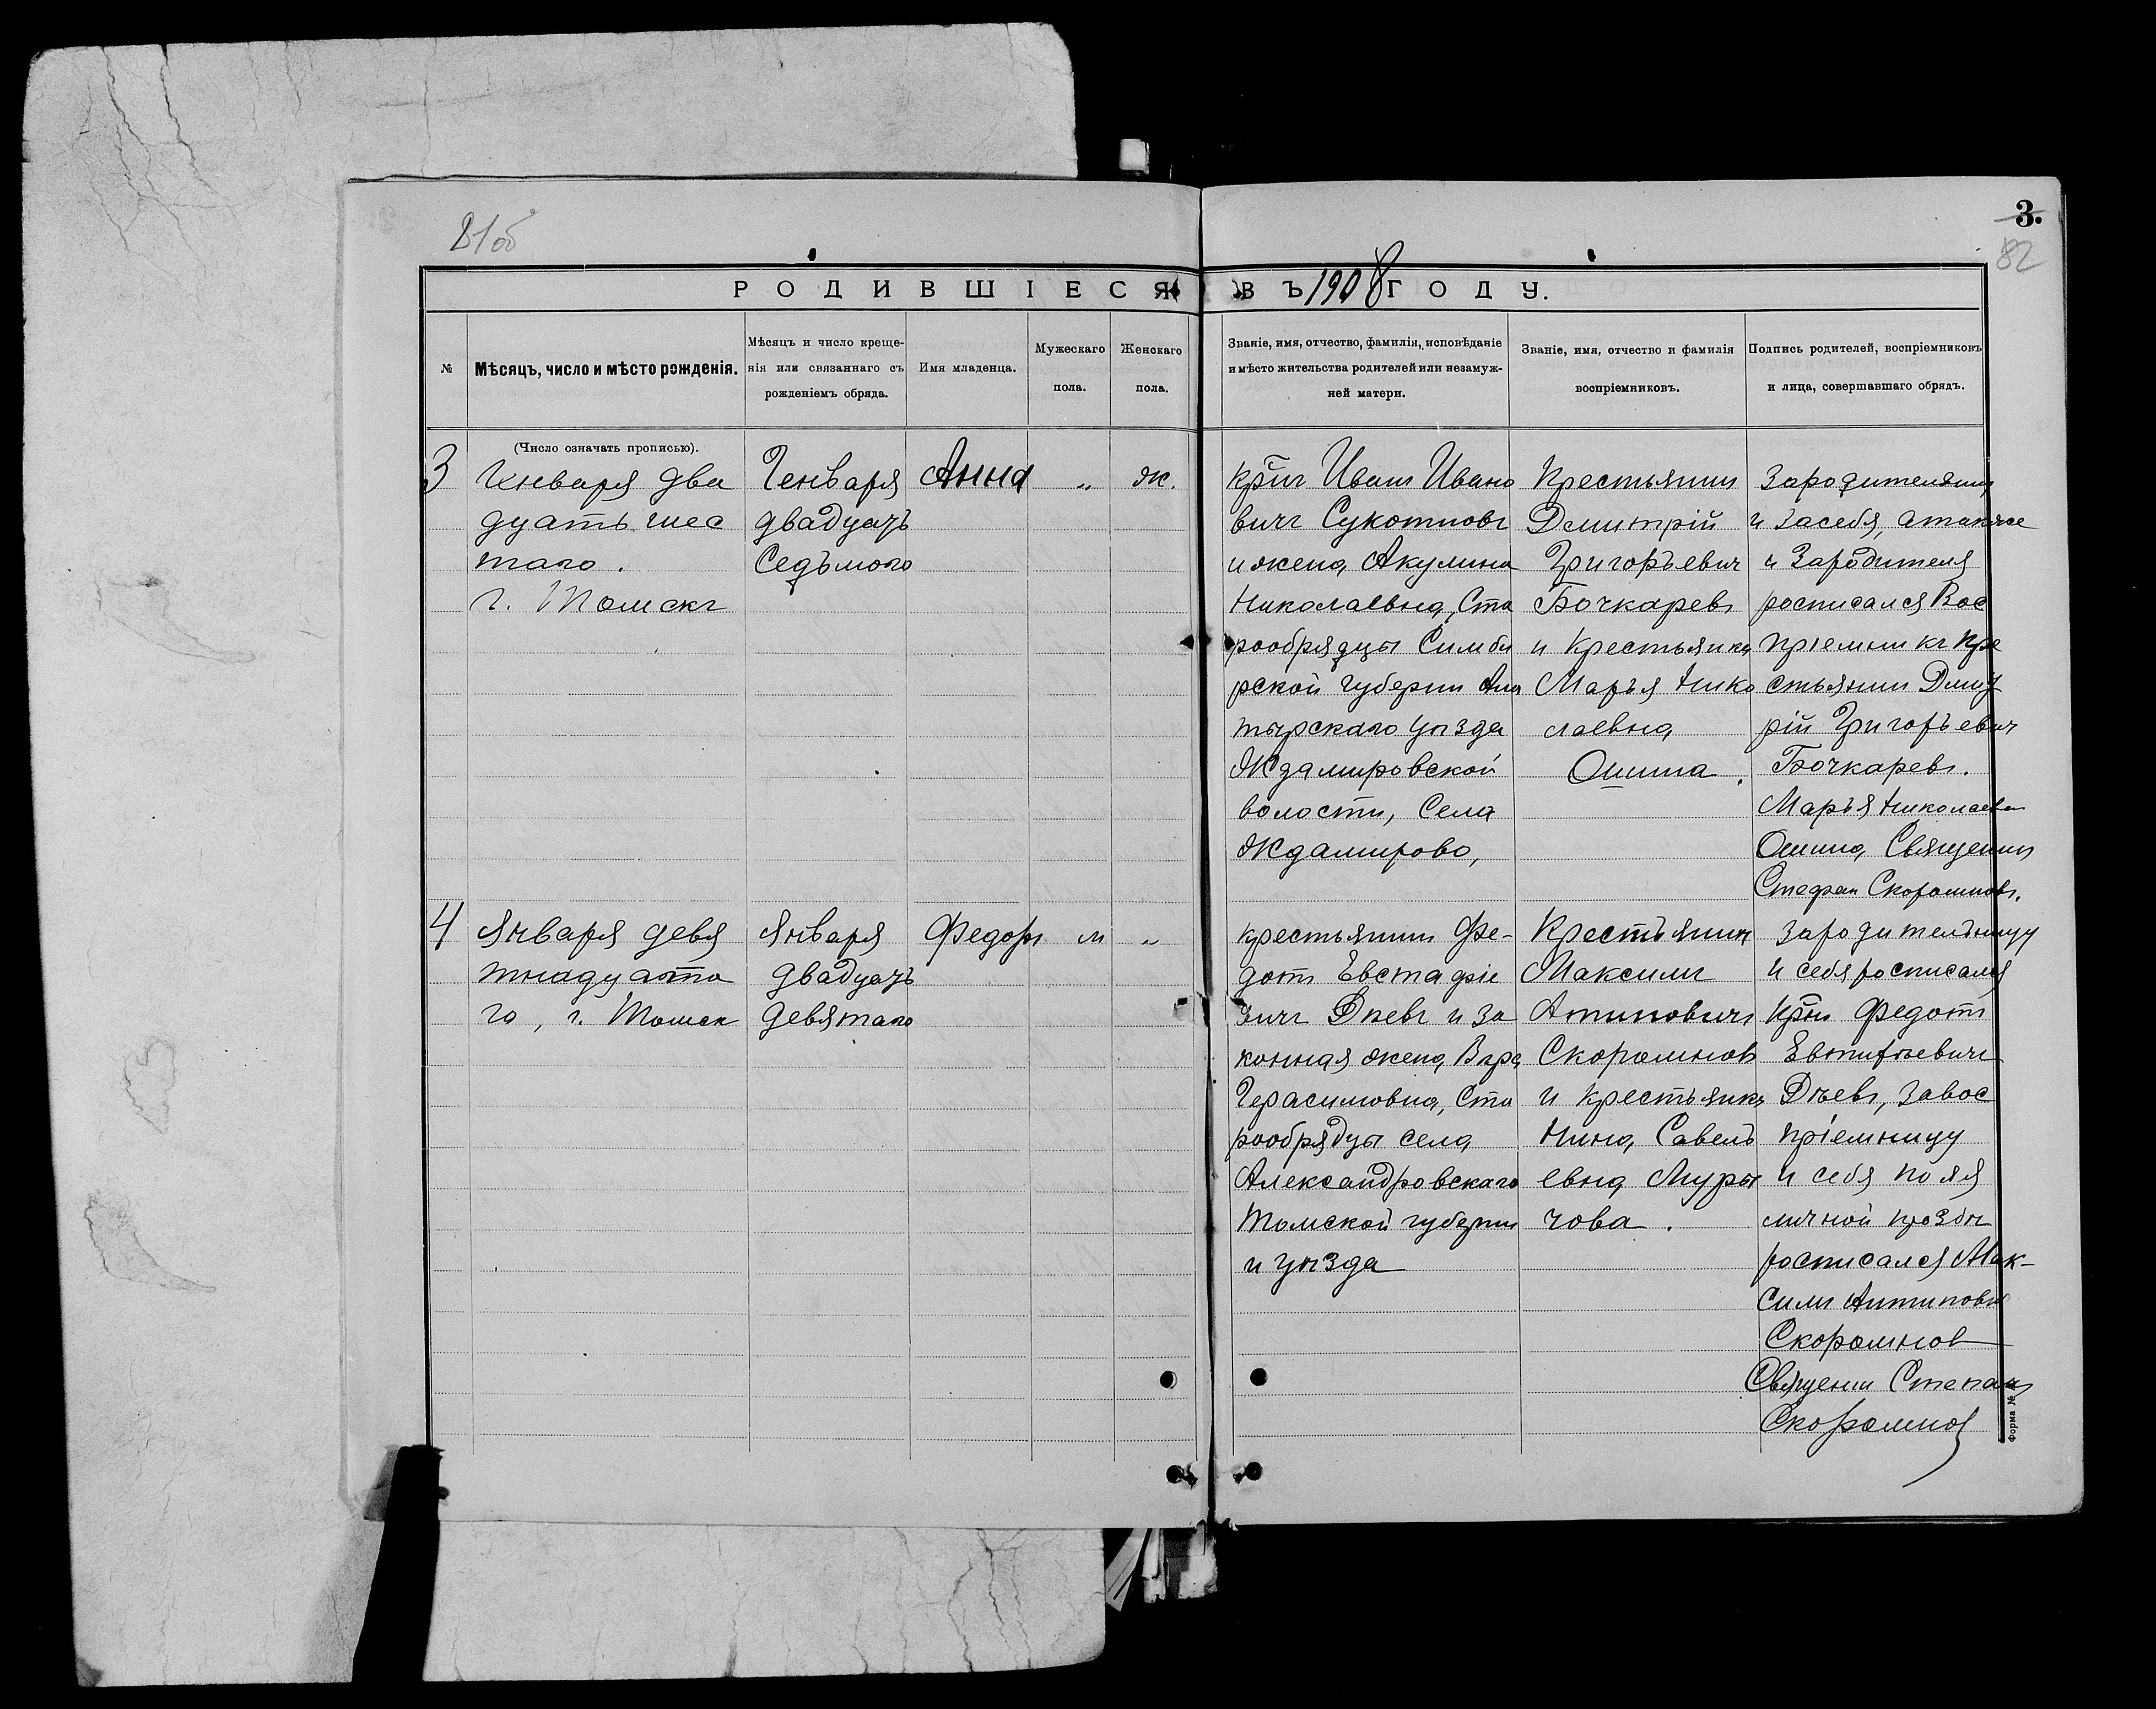 81об
3.
82
РОДИВШІЕСЯ ВЪ 1908 ГОДУ.
№
Мѣсяцъ, число и мѣсто рожденія.
Мѣсяцъ и число креще-
нія или связаннаго съ
рожденіемъ обряда.
Имя младенца.
Мужескаго
пола.
Женскаго
пола.
Званіе, имя, отчество, фамилія, исповѣданіе
и мѣсто жительства родителей или незамуж-
ней матери.
Званіе, имя, отчество и фамилія
воспріемниковъ.
Подпись родителей, воспріемниковъ
и лица, совершавшаго обрядъ.
(Число означать прописью).
3
Генваря два
дцать шес
таго.
г. Томскъ
Генваря
двадцать
Седьмого
Анна
„
ж.
Иванъ Ивано
вичъ Сукотновъ
и жена Акулина
Николаевна, Ста
рообрядцы Симби
рской губерніи Ала
тырскаго уѣзда
Ждамировской
волости, Села
Ждамирово,
Крестьянин
Дмитрій
Григорьевич
Бочкаревъ
и Крестьянка
Марья Нико
лаевна
Ошина.
Зародительницу
и засебя, атакже
и Зародителя
росписался Вос
пріемникъ Кре
стьянин Дмит
рій Григорьевич
Бочкаревъ.
Марья Николаевна
Ошина, Священик
Стефан Скоромновъ.
4
Января девя
тнадцато
го, г. Томск
Января
двадцать
девятаго
Федоръ
м
„
крестьянин Фе-
дот Евстафіе
вичъ и за
конная жена, Вѣра
Герасимовна, Ста
рообрядцы села
Александровскаго
Томской губерніи
и уѣзда
Крестьянин
Максимъ
Атиповичъ
Скоромнов
и крестьянка
Нина, Савель
евна, Муры
чова.
Зародительницу
и себя росписался
Федот
завос
пріемницу
и себя по ея
личной прозбѣ
росписался Мак-
симъ Антиповъ
Скоромнов
Священик Степанъ
Скоромнов
Форма №